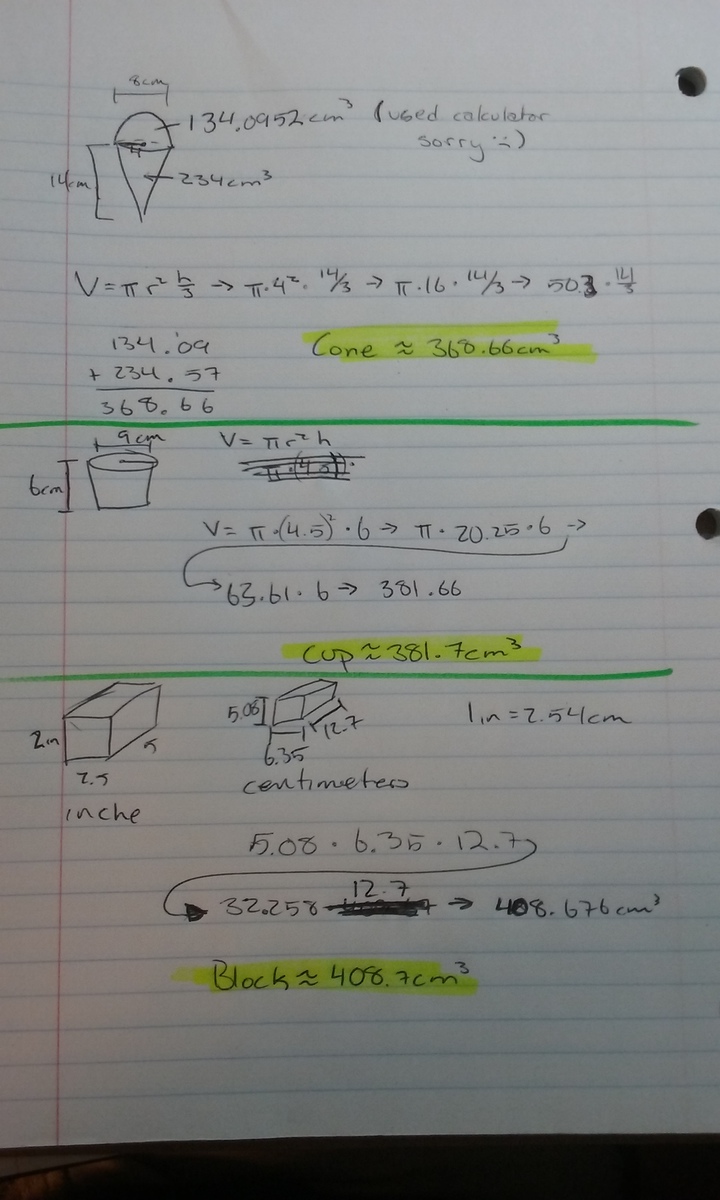 8cm
134.0952cm³ (used calculator
sorry :-)
14cm
4
234cm³
V = π r² h/3 → π·4²·14/3 → π·16·14/3 → 50.3·14/3
134.09
+ 234.57
368.66
Cone ≈ 368.66cm³
9cm
6cm
V = πr²h
V = π·(4.5)²·6 → π·20.25·6 →
63.61·6 → 381.66
Cup ≈ 381.7cm³
2in
2.5
5
inche
5.08
6.35
12.7
centimeters
1in = 2.54cm
5.08 · 6.35 · 12.7
32.258 12.7 → 408.676cm³
Block ≈ 408.7cm³